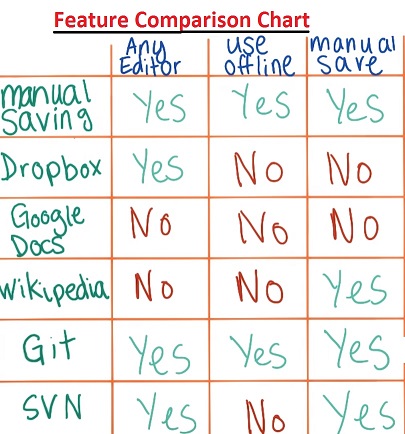 Feature Comparison Chart
Any Editor use offline manual save
manual Saving Yes Yes Yes
Dropbox Yes No No
Google Docs No No No
Wikipedia No No Yes
Git Yes Yes Yes
SVN Yes No Yes